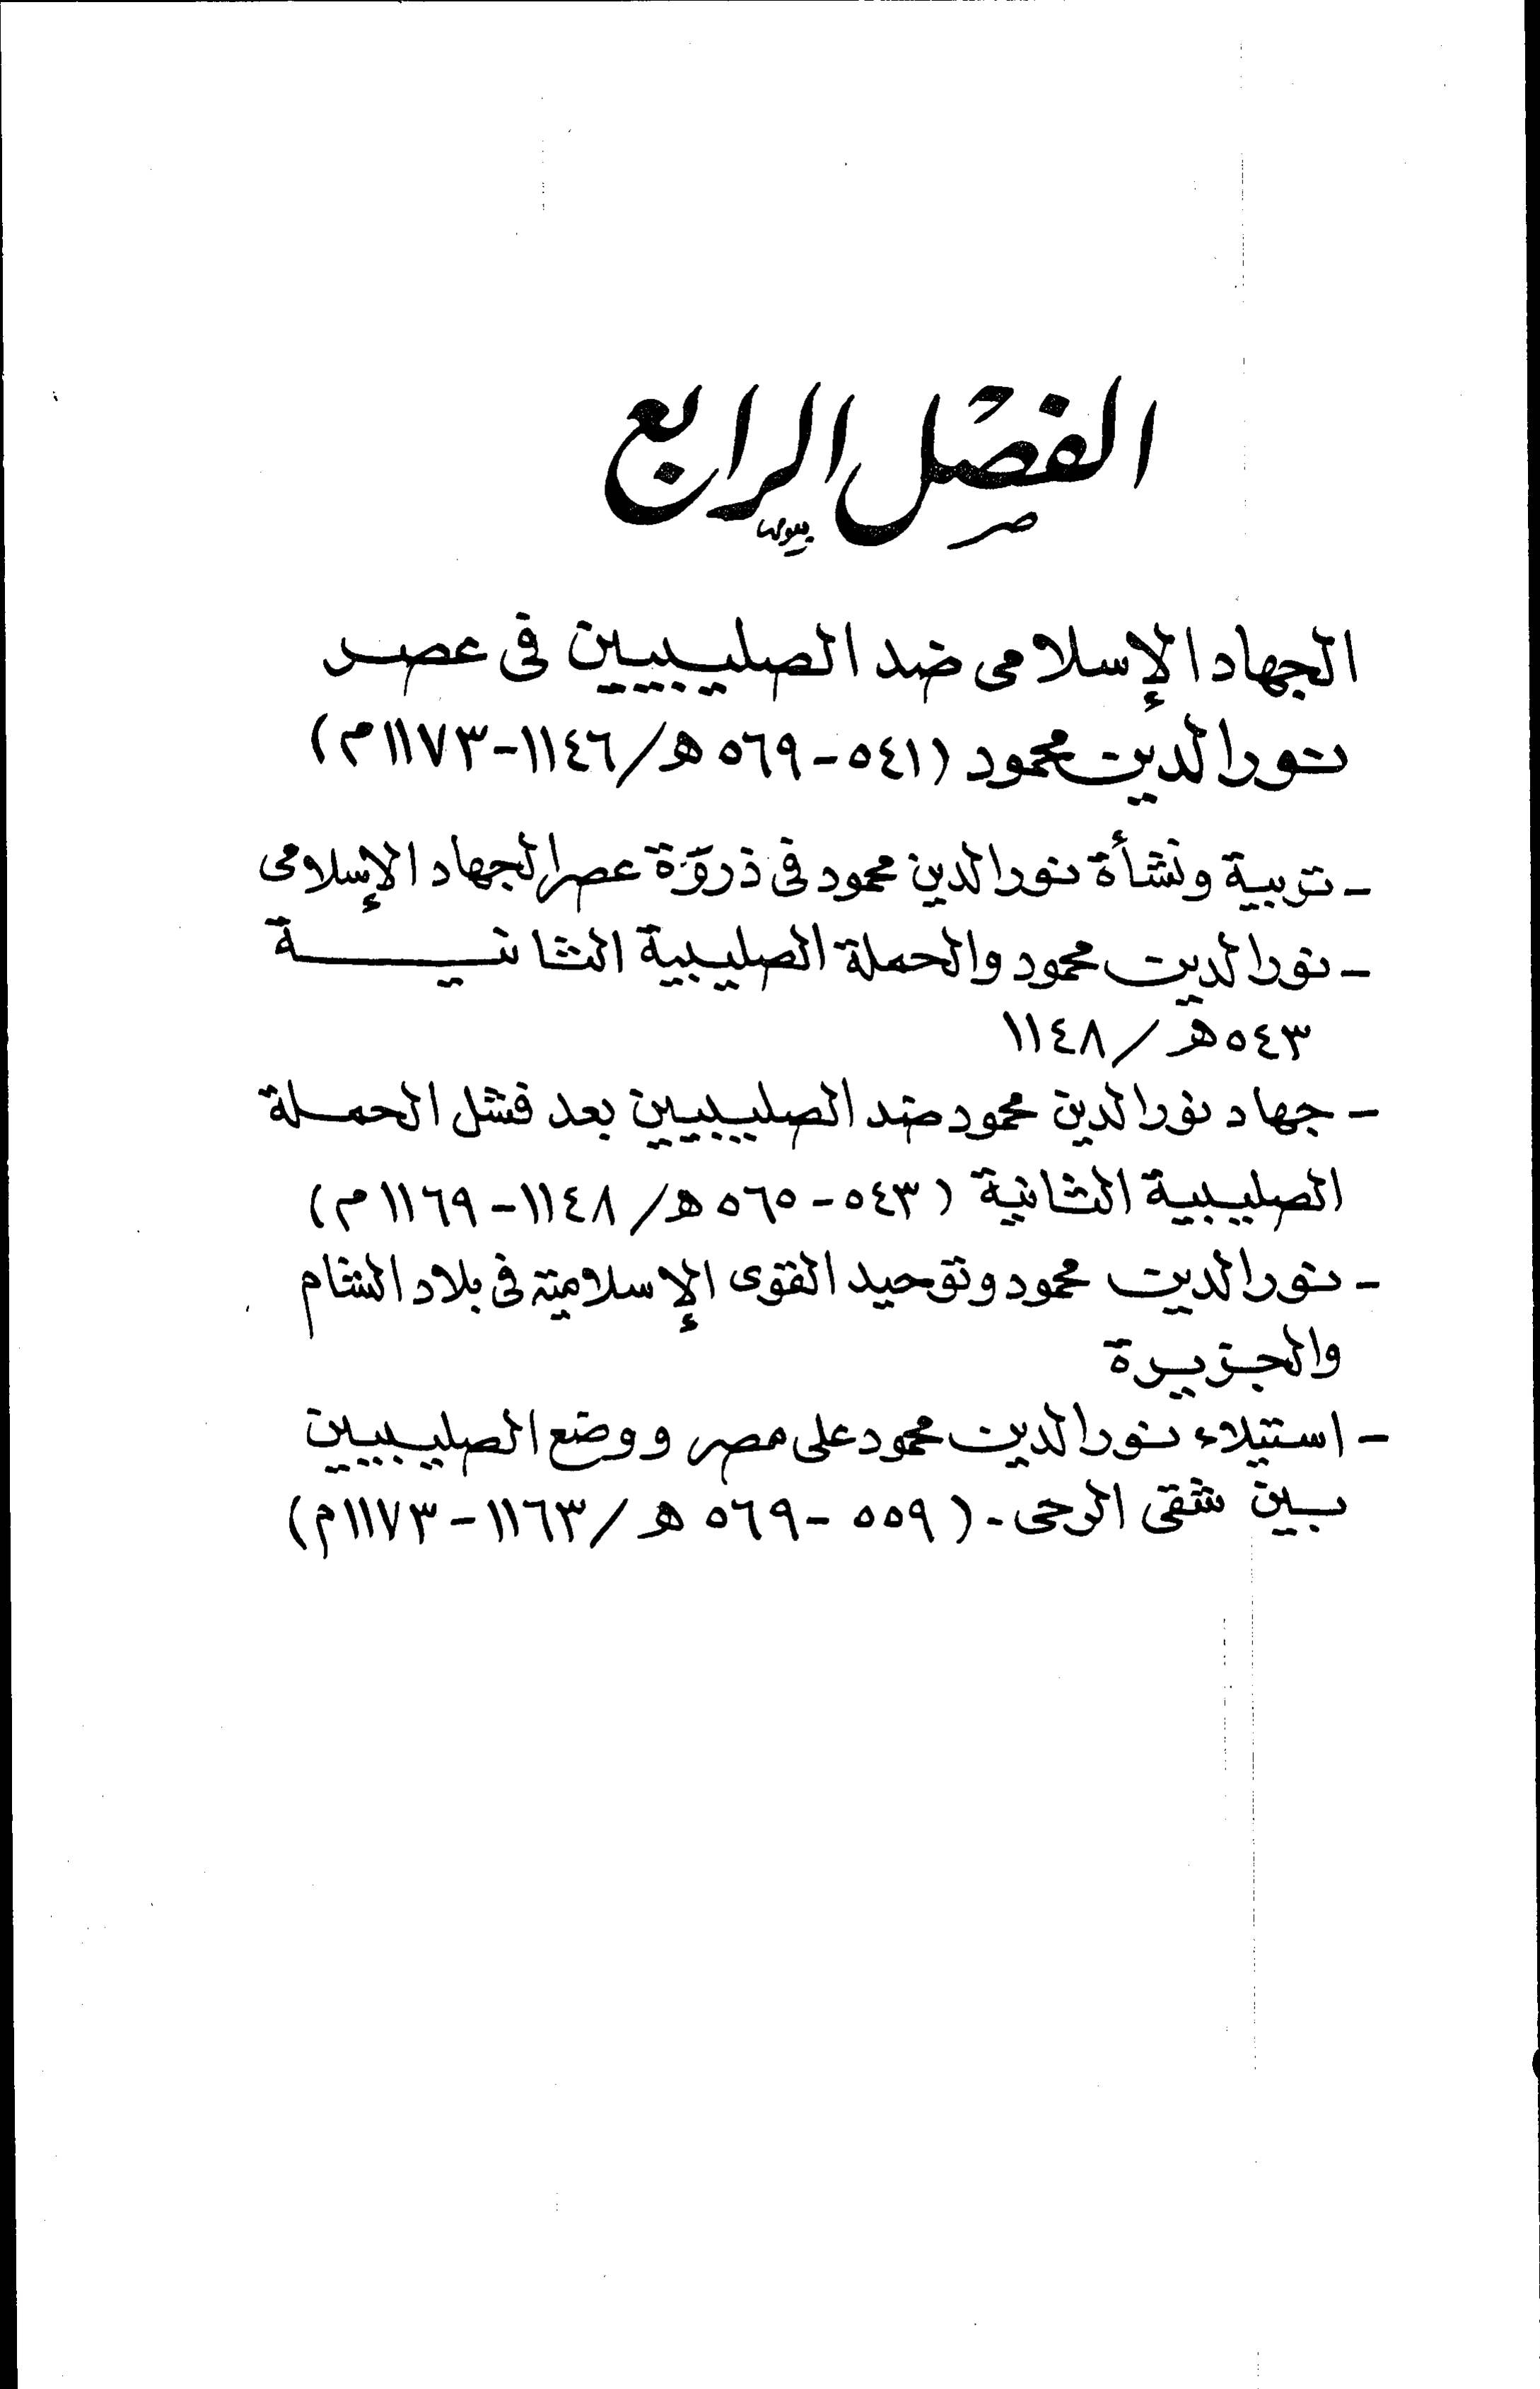 الفصل الرابع
الجهاد الإسلامى ضد الصليبيين فى عصر
نور الدين محمود (٥٤١ - ٥٦٩ هـ/ ١١٤٦ - ١١٧٣م)
- تربية ونشأة نور الدين محمود فى ذروة عصر الجهاد الإسلامى
- نور الدين محمود والحملة الصليبية الثانية
٥٤٣هـ / ١١٤٨
- جهاد نور الدين محمود ضد الصليبيين بعد فشل الحملة
الصليبية الثانية ( ٥٤٣ - ٥٦٥ هـ/ ١١٤٨ - ١١٦٩م)
- نور الدين محمود وتوحيد القوى الإسلامية فى بلاد الشام
والجزيرة
- استيلاء نور الدين محمود على مصر ووضع الصليبيين
بين شقى الرحى - ( ٥٥٩ - ٥٦٩ هـ/ ١١٦٣ - ١١٧٣م)